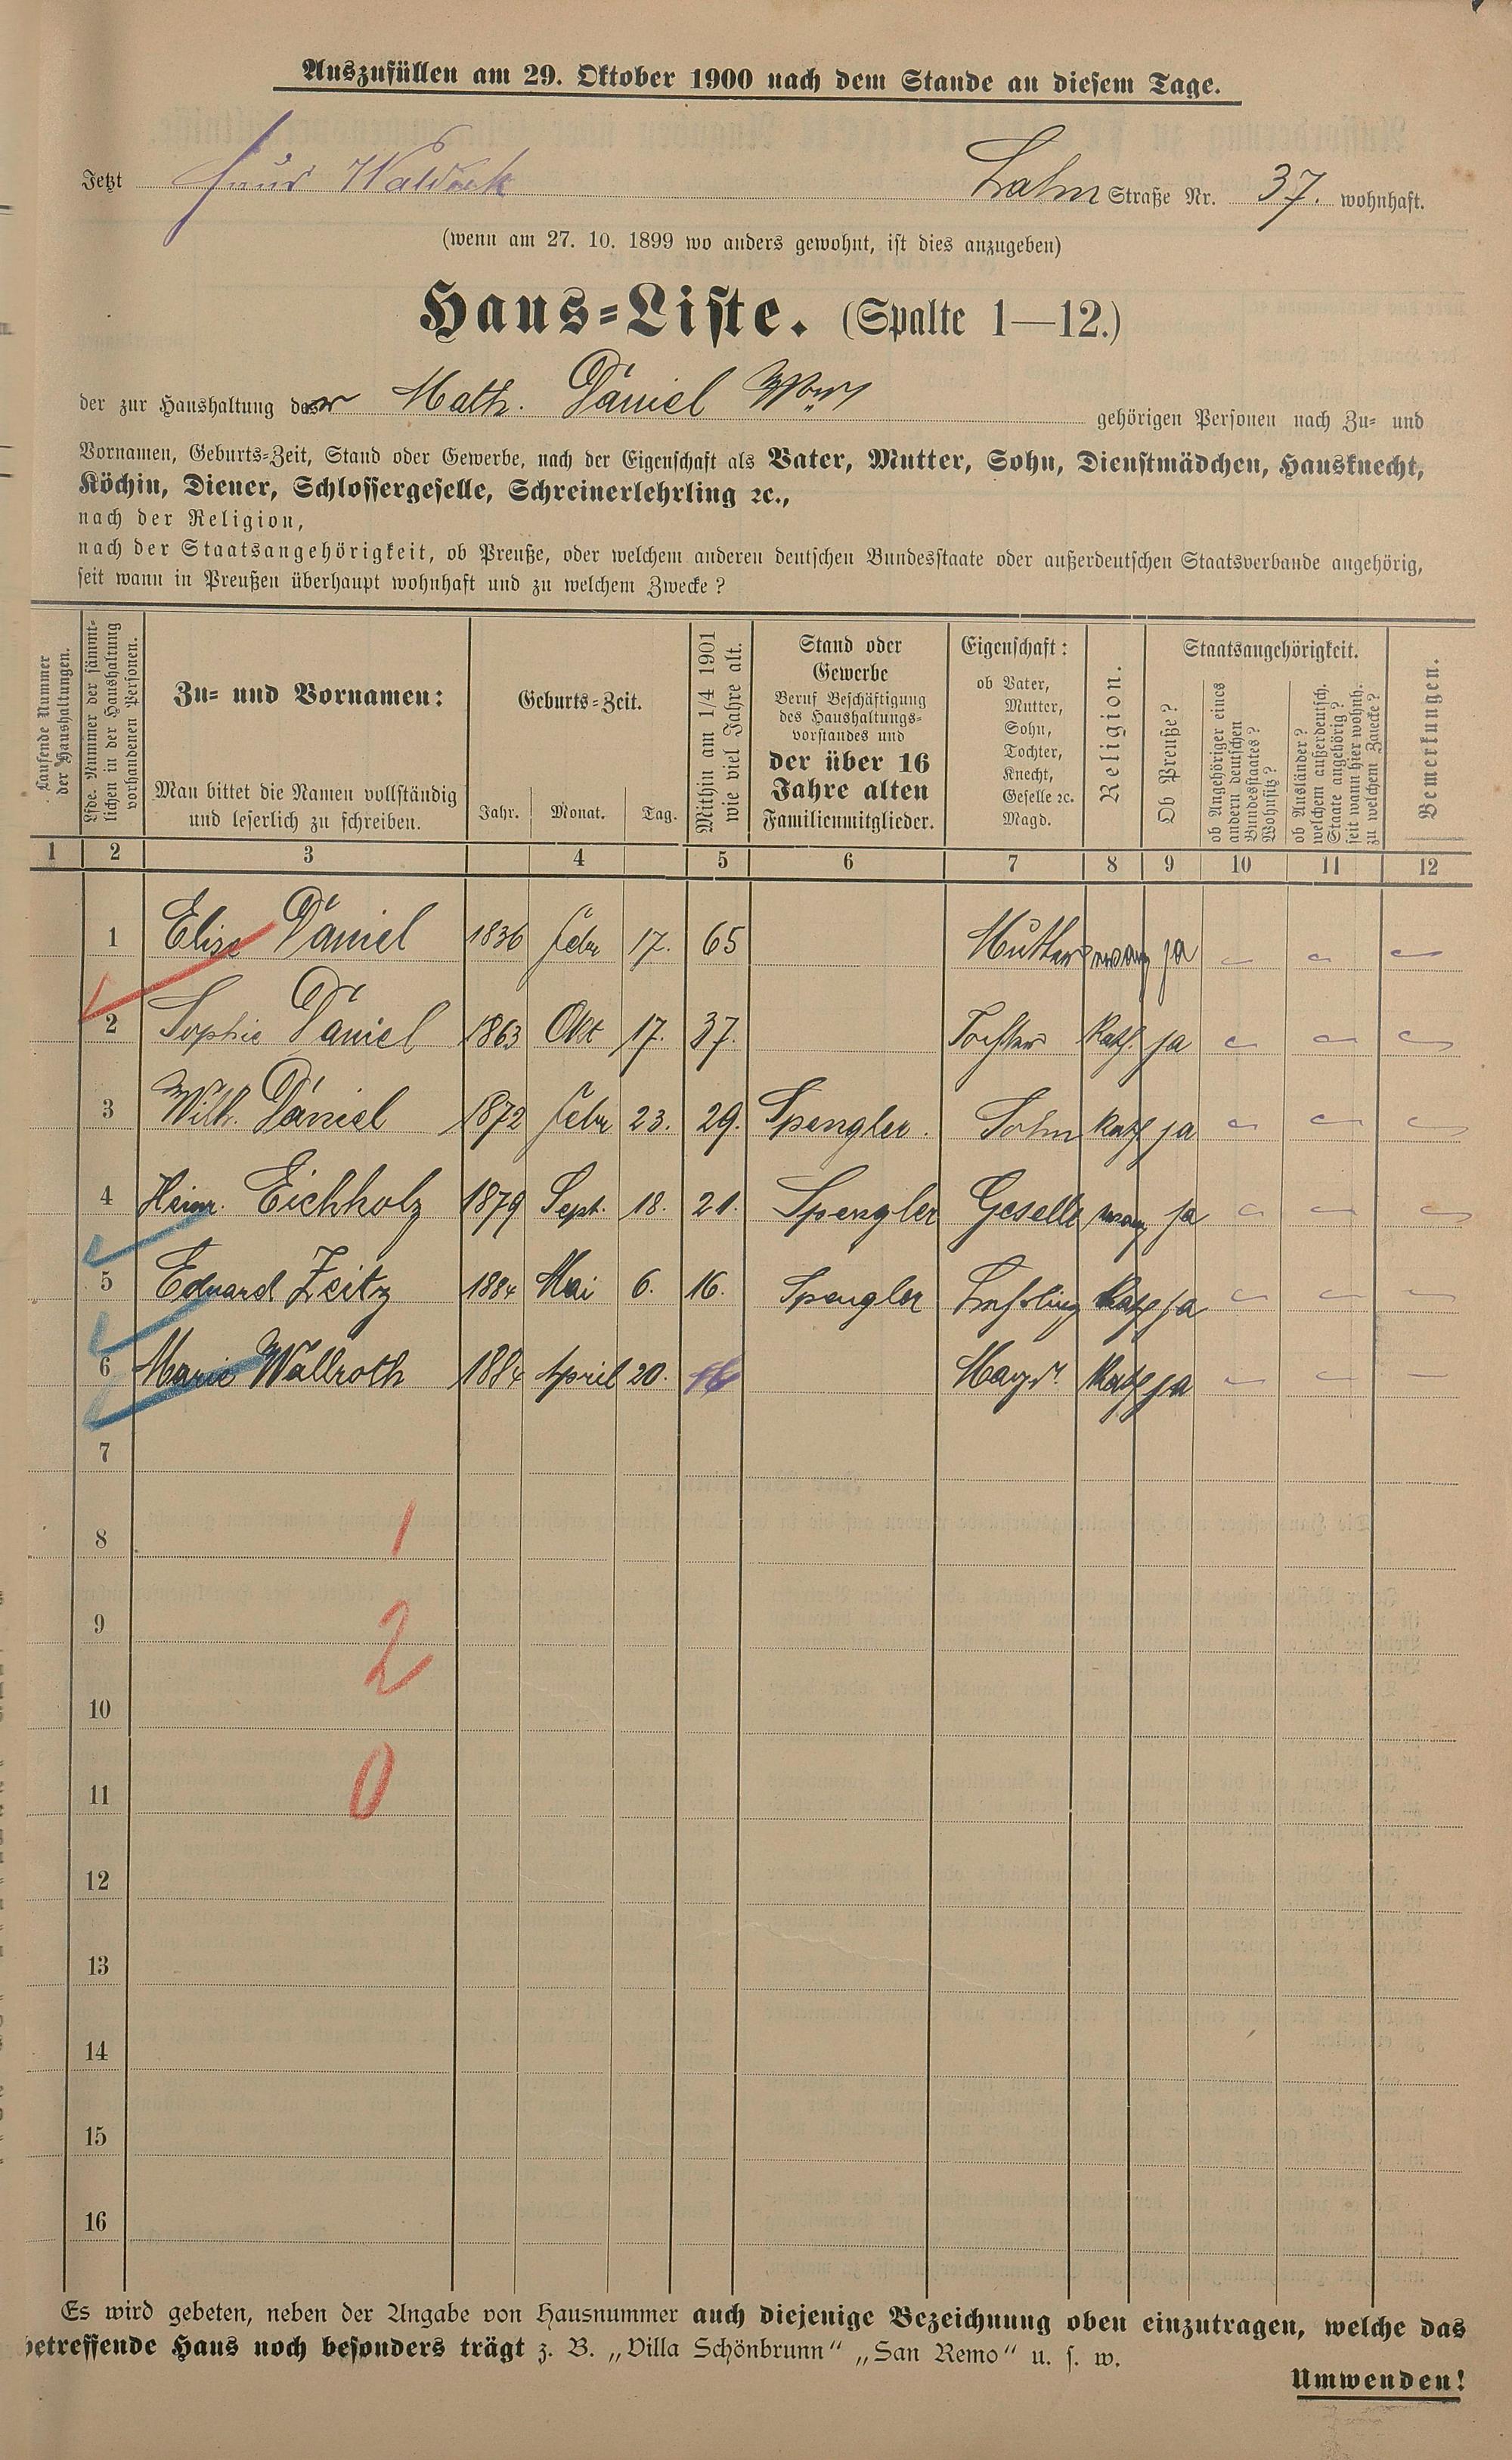 Auszufüllen am 29. Oktober 1900 nach dem Stande an diesem Tage.
Jetzt Haus Waldeck Lahn Straße Nr. 37. wohnhaft.
(wenn am 27. 10. 1899 wo anders gewohnt, ist dies anzugeben)
Haus=Liste. (Spalte 1—12.)
der zur Haushaltung der Math. Däniel gehörigen Personen nach Zu= und
Vornamen, Geburts=Zeit, Stand oder Gewerbe, nach der Eigenschaft als Vater, Mutter, Sohn, Dienstmädchen, Hausknecht,
Köchin, Diener, Schlossergeselle, Schreinerlehrling ꝛc.,
nach der Religion,
nach der Staatsangehörigkeit, ob Preuße, oder welchem anderen deutschen Bundesstaate oder außerdeutschen Staatsverbande angehörig,
seit wann in Preußen überhaupt wohnhaft und zu welchem Zwecke?
Laufende Nummer
der Haushaltungen.
Lfde. Nummer der sämmt=
lichen in der Haushaltung
vorhandenen Personen.
Zu= und Vornamen:
Man bittet die Namen vollständig
und leserlich zu schreiben.
Geburts=Zeit.
Jahr. Monat. Tag.
Mithin am 1/4 1901
wie viel Jahre alt.
Stand oder
Gewerbe
Beruf Beschäftigung
des Haushaltungs=
vorstandes und
der über 16
Jahre alten
Familienmitglieder.
Eigenschaft:
ob Vater,
Mutter,
Sohn,
Tochter,
Knecht,
Geselle ꝛc.
Magd.
Religion.
Staatsangehörigkeit.
Ob Preuße?
ob Angehöriger eines
andern deutschen
Bundesstaates?
Wohnsitz?
ob Ausländer?
welchem außerdeutsch.
Staate angehörig?
seit wann hier wohnh.
zu welchem Zwecke?
Bemerkungen.
1 2 3 4 5 6 7 8 9 10 11 12
1 Elise Däniel 1836 Febr 17. 65 Mutter evang ja
2 Sophie Däniel 1863 Okt 17. 37. Tochter Kath. ja
3 Wilh. Däniel 1872 Febr 23. 29. Spengler. Sohn Kath ja
4 Heinr. Eichholz 1879 Sept. 18. 21. Spengler Geselle evang ja
5 Eduard Zeitz 1884 Mai 6. 16. Spengler Lehrling Kath ja
6 Marie Wallroth 1884 April 20. 16 Magd. Kath ja
7
8 1
9 2
10
11 0
12
13
14
15
16
Es wird gebeten, neben der Angabe von Hausnummer auch diejenige Bezeichnung oben einzutragen, welche das
betreffende Haus noch besonders trägt z. B. „Villa Schönbrunn“ „San Remo“ u. s. w.
Umwenden!